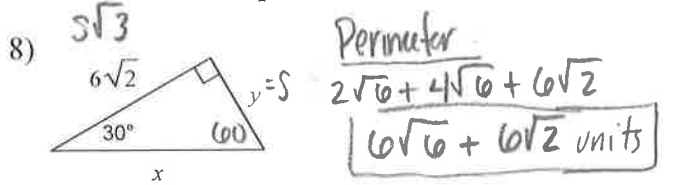 8)
S√3
6√2
y=S
30°
60
x
Perimeter
2√6 + 4√6 + 6√2
6√6 + 6√2 units